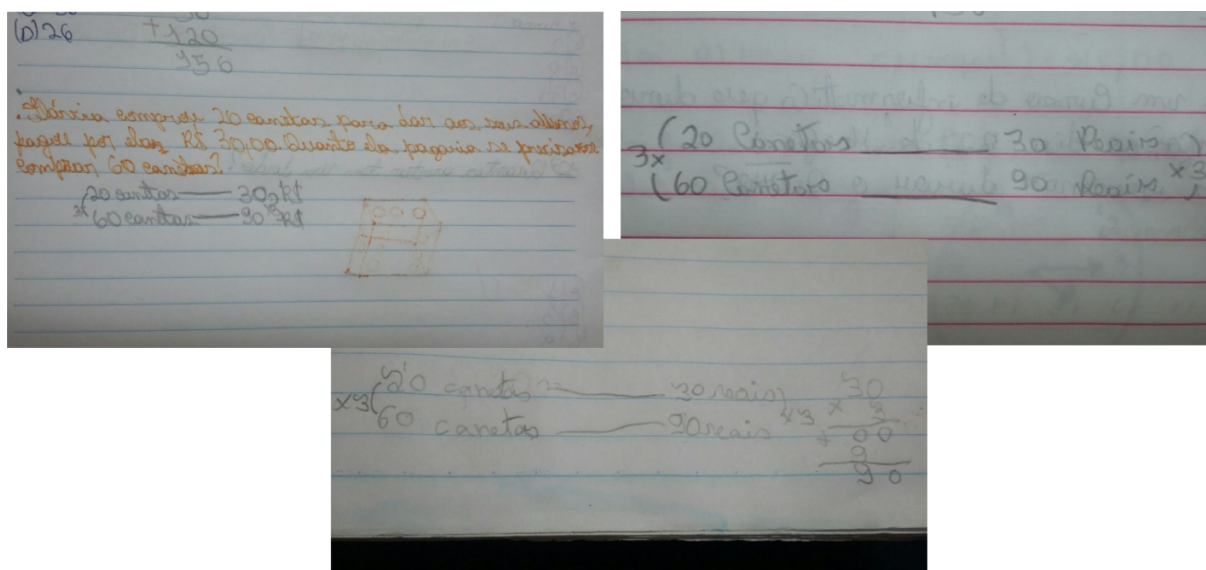 (D) 26
+120
956
Márcia comprou 20 canetas para dar aos seus alunos,
pagou por elas R$ 30,00. Quanto ela pagaria se precisasse
comprar 60 canetas?
20 canetas 30 R$
3x 60 canetas 90 R$
20 Canetas 30 Reais
3x x3
60 Canetas 90 Reais
20 canetas 30 reais 30
x3 x3 x 3
60 canetas 90 reais + 00
9
90